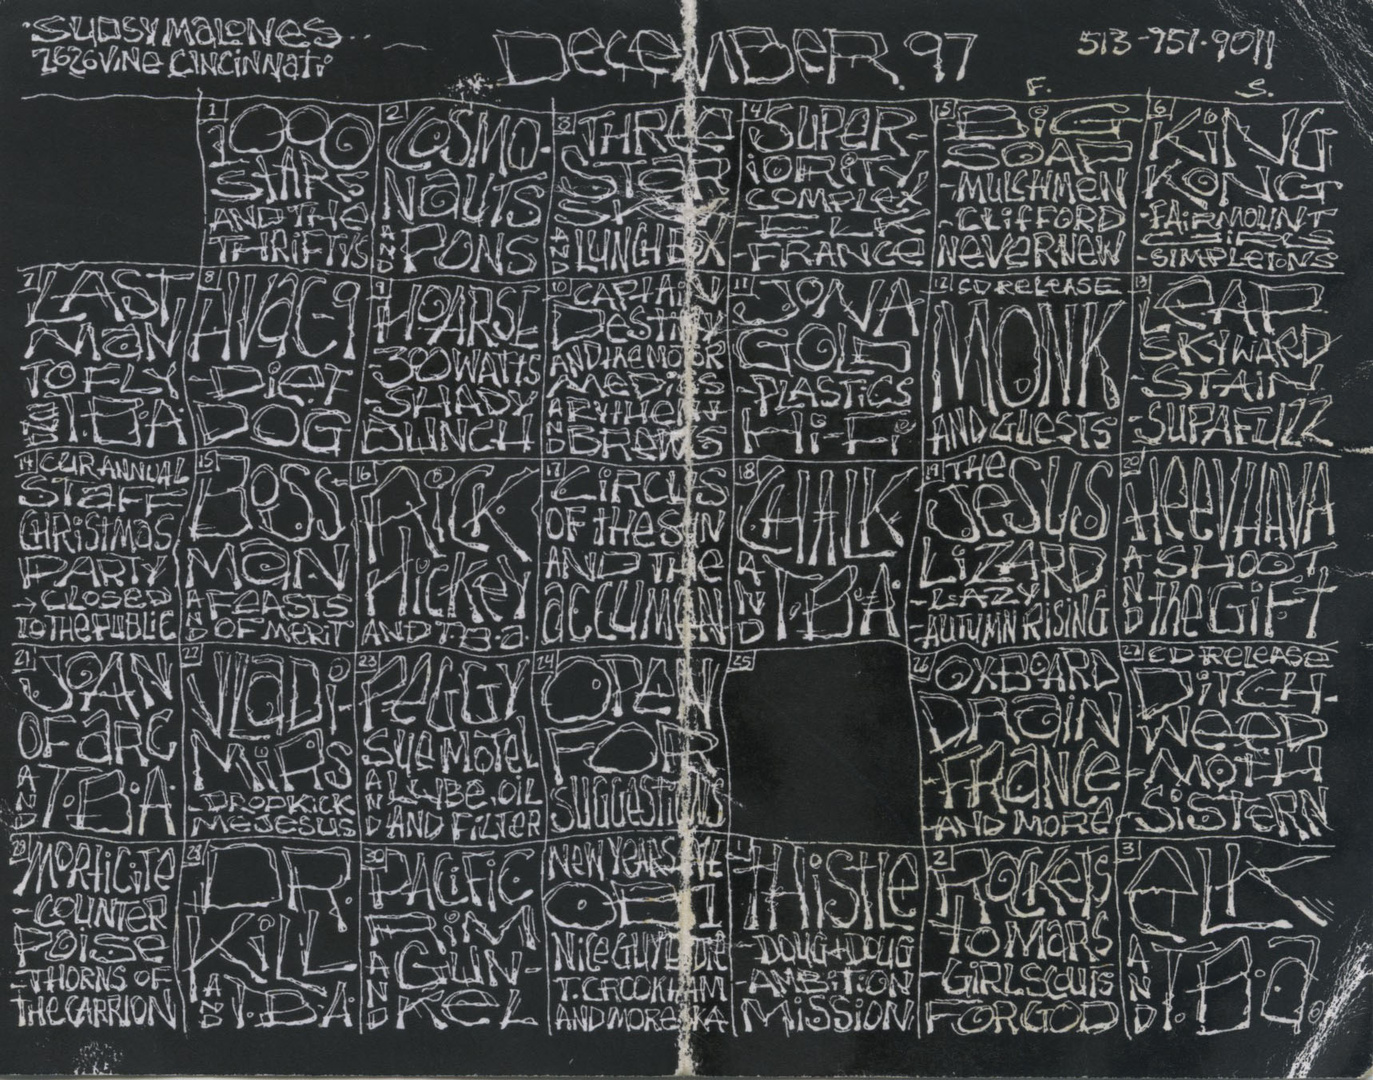 SUDSY MALONES
2626 VINE CINCINNATI
DECEMBER 97
513-751-9011
F.
S.
1
1000
STARS
AND THE
THRIFTYS
2
COSMO-
NAUTS
AND
PONS
3
THREE
STAR
SKY
AND
LUNCHBOX
4
SUPER-
IORITY
COMPLEX
-ELK
-FRANCE
5
BIG
SOAP
-MULCHMEN
-CLIFFORD
NEVERNEW
6
KING
KONG
-FAIRMOUNT
GIRLS
-SIMPLETONS
7
LAST
MAN
TO FLY
AND
T.B.A.
8
-DIET
DOG
9
HOARSE
-300 WATTS
-SHADY
BUNCH
10
CAPTAIN
DESTINY
AND
BREWS
11
JONA
GOLD
-PLASTICS
HI-FI
12
CD RELEASE
MONK
AND GUESTS
13
LEAP
SKYWARD
-STAIN
-SUPAFUZZ
14
OUR ANNUAL
STAFF
CHRISTMAS
PARTY
-CLOSED
TO THE PUBLIC
15
BOSS
MAN
AND
FEASTS
OF MERIT
16
RICK
HICKEY
AND T.B.A.
17
CIRCUS
OF THE SUN
AND THE
ACCUMEN
18
CHALK
AND
T.B.A.
19
THE
JESUS
LIZARD
-LAZY
-AUTUMN RISING
20
HEEVHAVA
AND
SHOOT
THE GIFT
21
JOAN
OF ARC
AND
T.B.A.
22
VLADI-
MIRS
-DROPKICK
ME JESUS
23
PEGGY
SUE MOTEL
AND
LUBE, OIL
AND FILTER
24
OPEN
FOR
SUGGESTIONS
25
26
OXBOARD
DRAIN
-FRANCE
-AND MORE
27
CD RELEASE
DITCH-
WEED
-MOTH
SISTERN
28
MORTICITE
-COUNTER
POISE
-THORNS OF
THE CARRION
29
DR.
KILL
AND
T.B.A.
30
PACIFIC
RIM
AND
GUN-
KEL
NEW YEARS EVE
OB1
T. CROOKHAM
AND MORE SKA
1
THISTLE
-DOUG + DOUG
-AMBITION
MISSION
2
ROCKETS
TO MARS
-GIRLSCOUTS
FOR GOD
3
ELK
AND
T.B.A.